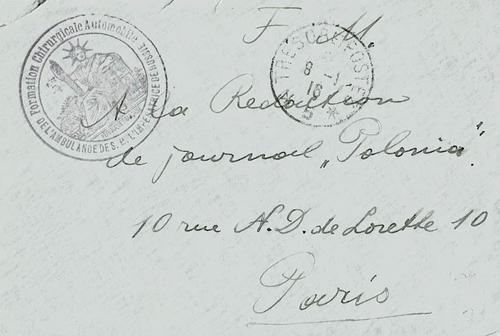 F. M.
Formation Chirurgicale Automobile
DE L'AMBULANCE DE S. M. L'IMPÉRATRICE DE RUSSIE
TRESOR ET POSTES
8 - 1
16
* 5 *
A la Redaction
de journal „Polonia".
10 rue N. D. de Lorette 10
Paris